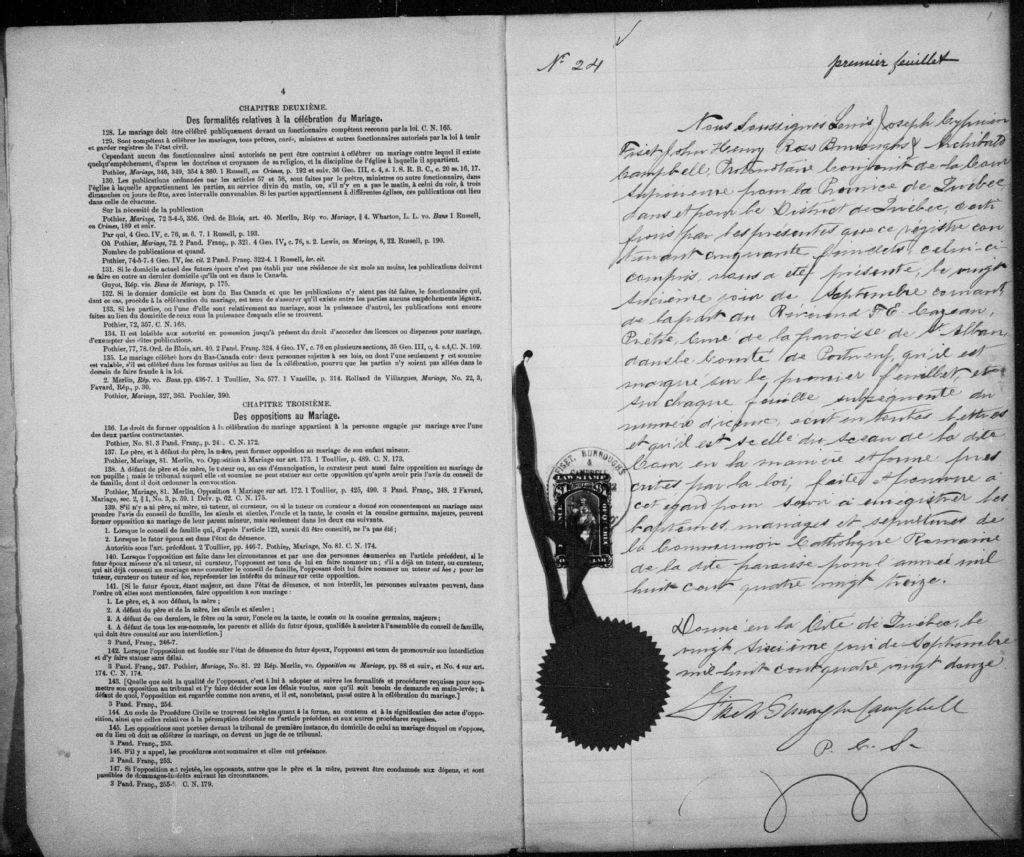 4
CHAPITRE DEUXIÈME.
Des formalités relatives à la célébration du Mariage.
128. Le mariage doit être célébré publiquement devant un fonctionnaire compétent reconnu par la loi. C. N. 165.
129. Sont compétents à célébrer les mariages, tous prêtres, curés, ministres et autres fonctionnaires autorisés par la loi à tenir
et garder registres de l'état civil.
Cependant aucun des fonctionnaires ainsi autorisés ne peut être contraint à célébrer un mariage contre lequel il existe
quelqu'empêchement, d'après les doctrines et croyances de sa religion, et la discipline de l'église à laquelle il appartient.
Pothier, Mariage, 346, 349, 354 & 360. 1 Russell, on Crimes, p. 192 et suiv. 36 Geo. III, c. 4, s. 1. S. R. B. C., c. 20 ss. 16, 17.
130. Les publications ordonnées par les articles 57 et 58, sont faites par le prêtre, ministres ou autre fonctionnaire, dans
l'église à laquelle appartiennent les parties, au service divin du matin, ou, s'il n'y en a pas le matin, à celui du soir, à trois
dimanches ou jours de fête, avec intervalle convenables. Si les parties appartiennent à différentes églises, ces publications ont lieu
dans celle de chacune.
Sur la nécessité de la publication
Pothier, Mariage, 72 3-4-5, 356. Ord. de Blois, art. 40. Merlin, Rép vo. Mariage, § 4. Wharton, L. L. vo. Bans 1 Russell,
on Crimes, 189 et suiv.
Par qui, 4 Geo. IV, c. 76, ss. 6, 7. 1 Russell, p. 193.
Où Pothier, Mariage, 72. 2 Pand. Franç., p. 321. 4 Geo. IV, c. 76, s. 2. Lewis, on Mariage, 8, 22. Russell, p. 190.
Nombre de publications et quand.
Pothier, 74-5-7. 4 Geo. IV, loc. cit. 2 Pand. Franç. 322-4. 1 Russell, loc. cit.
131. Si le domicile actuel des futurs époux n'est pas établi par une résidence de six mois au moins, les publications doivent
se faire en outre au dernier domicile qu'ils ont eu dans le Bas-Canada.
Guyot, Rép. vis. Bans de Mariage, p. 175.
132. Si le dernier domicile est hors du Bas Canada et que les publications n'y aient pas été faites, le fonctionnaire qui,
dans ce cas, procède à la célébration du mariage, est tenu de s'assurer qu'il existe entre les parties aucuns empêchements légaux.
133. Si les parties, ou l'une d'elles sont relativement au mariage, sous la puissance d'autrui, les publications sont encore
faites au lieu du domicile de ceux sous la puissance desquels elles se trouvent.
Pothier, 72, 357. C. N. 168.
134. Il est loisible aux autorité en possession jusqu'à présent du droit d'accorder des licences ou dispenses pour mariage,
d'exempter des dites publications.
Pothier, 77, 78. Ord. de Blois, art. 40. 2 Pand. Franç. 324. 4 Geo. IV, c. 76 en plusieurs sections, 35 Geo. III, c. 4, s.4, C. N. 169.
135. Le mariage célébré hors du Bas-Canada entre deux personnes sujettes à ses lois, ou dont l'une seulement y est soumise
est valable, s'il est célébré dans les formes usitées au lieu de la célébration, pourvu que les parties n'y soient pas allées dans le
dessein de faire fraude à la loi.
2. Merlin, Rép. vo. Bans. pp. 436-7. 1 Toullier, No. 577. 1 Vazeille, p. 314. Rolland de Villargues, Mariage, No. 22, 3,
Favard, Rép., p. 30.
Pothier, Mariage, 327, 363. Pouhier, 390.
CHAPITRE TROISIÈME.
Des oppositions au Mariage.
136. Le droit de former opposition à la célébration du mariage appartient à la personne engagée par mariage avec l'une
des deux parties contractantes.
Pothier, No. 81. 3 Pand. Franç., p. C. N. 172.
137. Le père, et à défaut du père, la mère, peut former opposition au mariage de son enfant mineur.
Pothier, Mariage, 81. Merlin, vo. Opposition à Mariage sur art. 173. 1 Toullier, p. 489. C. N. 173.
138. A défaut de père et de mère, le tuteur ou, au cas d'émancipation, le curateur peut aussi faire opposition au mariage de
son pupille; mais le tribunal auquel elle est soumise ne peut statuer sur cette opposition qu'après avoir pris l'avis du conseil de
de famille, dont il doit ordonner la convocation.
Pothier, Mariage, 81. Merlin, Oppositon à Mariage sur art. 172. 1 Toullier, p. 425, 490. 3 Pand. Franç., 248. 2 Favard,
Mariage, sec. 2, § 1, No. 3, p. 59. 1 Delv. p. 62. C. N. 175.
139. S'il n'y a ni père, ni mère, ni tuteur, ni curateur, ou si le tuteur ou curateur a donné son consentement au mariage sans
prendre l'avis du conseil de famille, les aïeuls et aïeules, l'oncle et la tante, le cousin et la cousine germains, majeurs, peuvent
former opposition au mariage de leur parent mineur, mais seulement dans les deux cas suivants.
1. Lorsque le conseil de famille qui, d'après l'article 122, aurait dû être consulté, ne l'a pas été;
2. Lorsque le futur époux est dans l'état de démence.
Autorités sous l'art. précédent. 2 Toullier, pp. 446-7. Pothier, Mariage, No. 81. C. N. 174.
140. Lorsque l'opposition est faite dans les circonstances et par une des personnes énumérées en l'article précédent, si le
futur époux mineur n'a ni tuteur, ni curateur, l'opposant est tenu de lui en faire nommer un; s'il a déjà un tuteur, ou curateur,
qui ait déjà consenti au mariage sans consulter le conseil de famille, l'opposant doit lui faire nommer un tuteur ad hoc; pour les
tuteur, curateur ou tuteur ad hoc, représenter les intérêts du mineur sur cette opposition.
141. [Si le futur époux, étant majeur, est dans l'état de démence, et non interdit, les personnes suivantes peuvent, dans
l'ordre où elles sont mentionnées, faire opposition à son mariage:
1. Le père, et, à son défaut, la mère;
2. A défaut du père et de la mère, les aïeuls et aïeules;
3. A défaut de ces derniers, le frère ou la sœur, l'oncle ou la tante, le cousin ou la cousine germains, majeurs;
4. A défaut de tous les sus-nommés, les parents et alliés du futur époux, qualifiés à assister à l'assemblée du conseil de famille,
qui doit être consulté sur son interdiction.]
3 Pand. Franç., 246-7.
142. Lorsque l'opposition est fondée sur l'état de démence du futur époux, l'opposant est tenu de promouvoir son interdiction
et d'y faire statuer sans délai.
3 Pand. Franç., 247. Pothier, Mariage, No. 81. 22 Rép. Merlin, vo. Opposition au Mariage, pp. 88 et suiv., et No. 4 sur art.
174. C. N. 174.
143. [Quelque soit la qualité de l'opposant, c'est à lui à adopter et suivre les formalités et procédures requises pour sou-
mettre son opposition au tribunal et l'y faire décider sous les délais voulus, sans qu'il soit besoin de demande en main-levée; à
défaut de quoi, l'opposition est regardée comme non avenu, et il est, nonobstant, passé outre à la célébration du mariage.]
3 Pand. Franç., 254.
144. Au code de Procédure Civile se trouvent les règles quant à la forme, au contenu et à la signification des actes d'oppo-
sition, ainsi que celles relatives à la péremption décrétée en l'article précédent et aux autres procédures requises.
145. Les oppositions sont portées devant le tribunal de première instance, du domicile de celui au mariage duquel on s'oppose,
ou du lieu où doit se célébrer le mariage, ou devant un juge de ce tribunal.
3 Pand. Franç., 253.
146. S'il y a appel, les procédures sont sommaires et elles ont préséance.
3 Pand. Franç., 253.
147. Si l'opposition est rejetée, les opposants, autres que le père et la mère, peuvent être condamnés aux dépens, et sont
passibles de dommages-intérêts suivant les circonstances.
3 Pand. Franç., 255-. C. N. 179.
1
No 24
premier feuillet
Nous Soussignés Louis Joseph Cyprien
Fiset John Henry Ross Burroughs & Archibald
Campbell, Protonotaire Conjoint de la Cour
Supérieure pour la Province de Québec
dans et pour le District de Québec, certi
fions par les présentes que ce registre con
tenant cinquante feuillets celui-ci
compris, nous a été présenté, le vingt
sixième jour de Septembre courant
de la part du Révérend F. E. Caseau,
Prêtre, Curé de la paroisse de St Alban,
dans le Comté de Portneuf, qu'il est
marqué sur le premier feuillet et
sur chaque feuille subséquente du
numéro d'iceux, écrit en toutes lettres
et qu'il est scellé du sceau de la dite
Cour, en la manière et forme pres
crites par la loi; faite et pourvue à
cet égard pour servir à enregistrer les
baptêmes, mariages et sépultures de
la Communion Catholique Romaine
de la dite paroisse pour l'année mil
huit cent quatre vingt treize.
Donné en la Cité de Québec, le
vingt sixième jour de Septembre
mil huit cent quatre vingt douze
Fiset Burroughs Campbell
P. C. S.
FISET, BURROUGHS
&
CAMPBELL
LAW STAMP
$1
QUEBEC